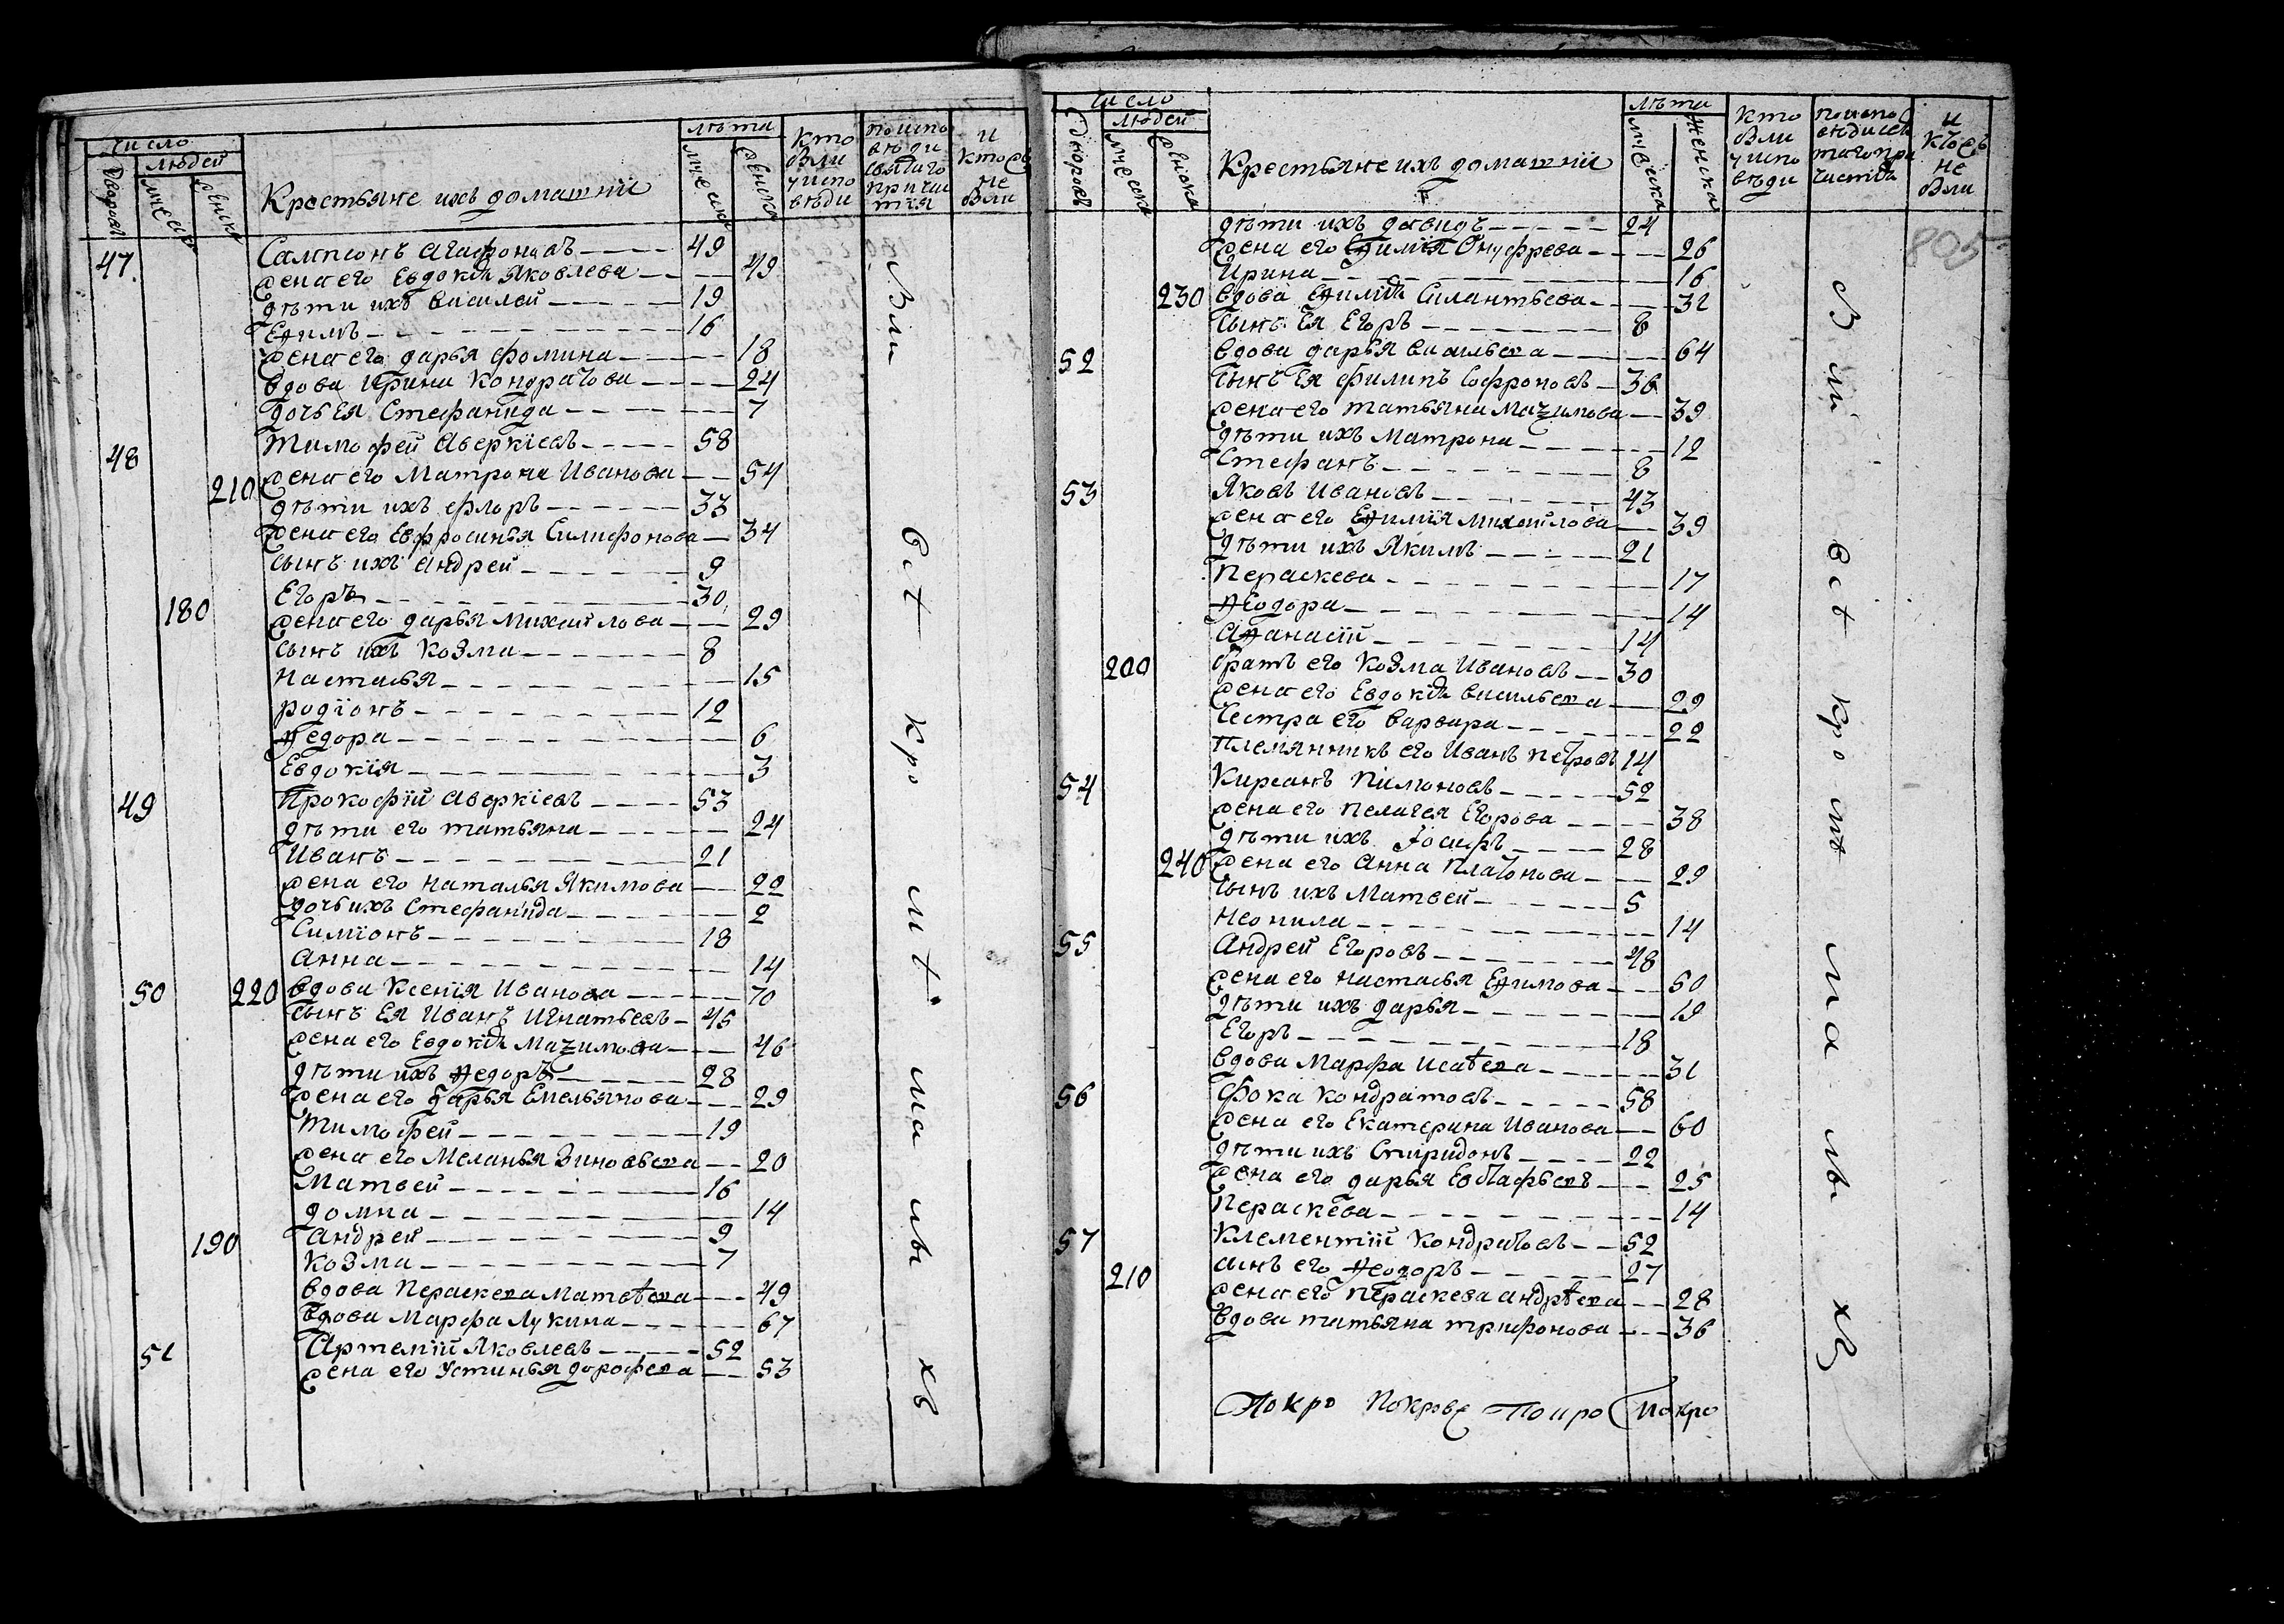 число
людей
дворовъ
мужеска
женска
Крестьяне ихъ домашнїи
лѣта
мужеска
женска
кто были у исповѣди
по исповѣди святаго причастїя
и кто ев не были
47 Сампсонъ Агафоновъ 49
жена его Евдокїя Яковлева 49
дѣти ихъ Василей 19
Ефимъ 16
жена его дарья фомина 18
вдова Ирина Кондратова 24
дочь Ея Стефанида 7
48 Тимофей Аверкїевъ 58
210 жена его Матрона Иванова 54
дѣти ихъ флоръ 33
жена его Евфросинья Силифонова 34
сынъ ихъ Андрей 9
180 Егоръ 30
жена его дарья Михайлова 29
сынъ ихъ Козма 8
Настасья 15
родїонъ 12
Ѳедора 6
Евдокїя 3
49 Прокофїй Аверкїевъ 53
дѣти его татьяна 24
Иванъ 21
жена его Наталья Якимова 20
дочь ихъ Стефанида 2
Симїонъ 18
Анна 14
50 220 вдова Ксенїя Иванова 70
сынъ Ея Иванъ Игнатьевъ 45
жена его Евдокїя Маѯимова 46
дѣти ихъ Ѳедоръ 28
жена его дарья Емельянова 29
Тимофей 19
жена его Меланья Зиновьева 20
Матвей 16
домна 14
190 Андрей 9
Козма 7
вдова Пераскева Матвѣева 49
вдова Марфа Лукина 67
51 Артемїй Яковлевъ 52
жена его Устинья дорофеева 53
Были всѣ кромѣ малыхъ
число
людей
дворовъ
мужеска
женска
Крестьяне ихъ домашнїи
лѣта
мужеска
женска
кто были у исповѣди
и не были
805
дѣти ихъ давидъ 24
жена его Еѳимїя Онуфрева 26
Ирина 16
230 вдова Еѳимїя Силантьева 32
сынъ Ея Егоръ 8
52 вдова дарья Васильева 64
сынъ Ея филипъ Софроновъ 36
жена его татьяна Маѯимова 39
дѣти ихъ Матрона 12
Стефанъ 8
53 Яковъ Ивановъ 43
жена его Еѳимїя Михайлова 39
дѣти ихъ Якимъ 21
Пераскева 17
Ѳеодора 14
Аѳанасїй 14
200 братъ его Козма Ивановъ 30
жена его Евдокїя Васильева 29
сестра его варвара 22
племянникъ его Иванъ петровъ 14
54 Кирсанъ Пимоновъ 52
жена его Пелагея Егорова 38
дѣти ихъ Іосифъ 28
240 жена его Анна Платонова 29
сынъ ихъ Матвей 5
Неонила 14
55 Андрей Егоровъ 48
жена его Настасья Еѳимова 50
дѣти ихъ дарья 19
Егоръ 18
вдова Марфа Исаѣева 31
56 Фока Кондратовъ 58
жена его Екатерина Иванова 60
дѣти ихъ Спиридонъ 22
жена его дарья 25
Пераскева 14
57 Климентїй Кондратовъ 52
210 сынъ его Ѳеодоръ 27
жена его Пераскева андрѣева 28
вдова татьяна трифонова 36
Были всѣ кромѣ малыхъ
Покро Покрове Покро Покро